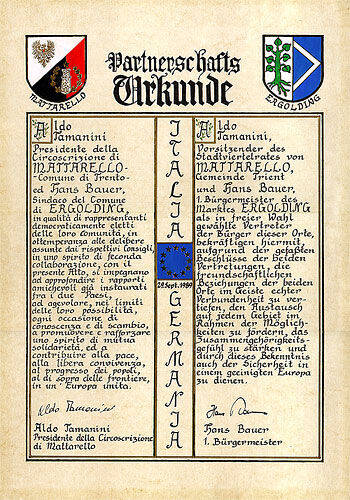 Partnerschafts
Urkunde
MATTARELLO
ERGOLDING
Aldo
Tamanini
Presidente della
Circoscrizione di
MATTARELLO-
Comune di Trento-
ed Hans Bauer,
Sindaco del Comune
di ERGOLDING,
in qualità di rappresentanti
democraticamente eletti
delle loro Comunità, in
ottemperanza alle delibere
assunte dai rispettivi Consigli,
in uno spirito di feconda
collaborazione, con il
presente Atto, si impegnano
ad approfondire i rapporti
amichevoli già instaurati
fra i due Paesi,
ad agevolare, nei limiti
delle loro possibilità,
ogni occasione di
conoscenza e di scambio,
a promuovere e rafforzare
uno spirito di mutua
solidarietà, ed a
contribuire alla pace,
alla libera convivenza,
al progresso dei popoli,
al di sopra delle frontiere,
in un' Europa unita.
Aldo Tamanini
Aldo Tamanini
Presidente della Circoscrizione
di Mattarello
ITALIA
29. Sept. 1989
GERMANIA
Aldo
Tamanini,
Vorsitzender des
Stadtviertelrates von
MATTARELLO,
Gemeinde Trient
und Hans Bauer,
1. Bürgermeister des
Marktes ERGOLDING
als in freier Wahl
gewählte Vertreter
der Bürger dieser Orte,
bekräftigen hiermit,
aufgrund der gefaßten
Beschlüsse der beiden
Vertretungen, die
freundschaftlichen
Beziehungen der beiden
Orte im Geiste echter
Verbundenheit zu ver-
tiefen, den Austausch
auf jedem Gebiet im
Rahmen der Möglich-
keiten zu fördern, das
Zusammengehörigkeits-
gefühl zu stärken und
durch dieses Bekenntnis
auch der Sicherheit in
einem geeinigten Europa
zu dienen.
Hans Bauer
Hans Bauer
1. Bürgermeister